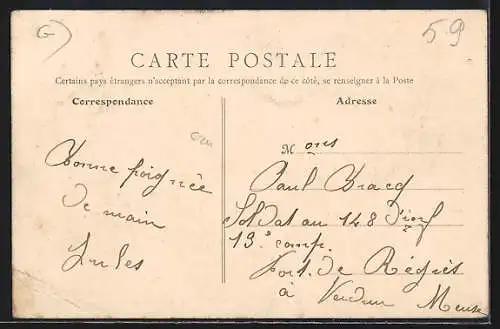 G)
59
CARTE POSTALE
Certains pays étrangers n'acceptant pas la correspondance de ce côté, se renseigner à la Poste
Correspondance
Adresse
Bonne poignée
de main
Jules
Mons
Paul Bracq
Soldat au 148 d'inf
13e comp.
Fort de Régret
à Verdun Meuse